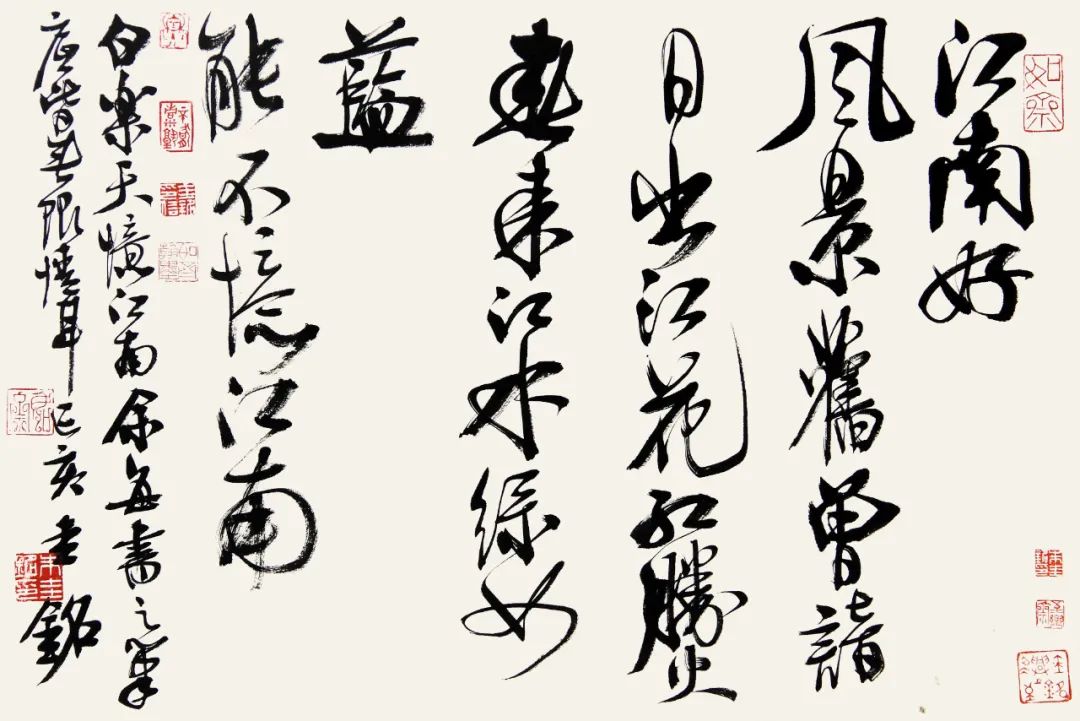 江南好
風景舊曾諳
日出江花紅勝火
春來江水綠如
藍
能不憶江南
白樂天憶江南余每書之筆
底皆無限情耳己亥圭銘